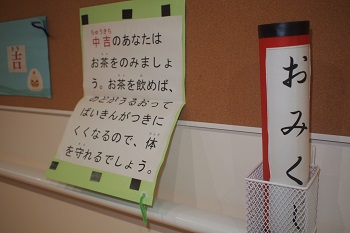 吉
ちゅうきち
中吉のあなたは
お茶をのみましょ
う。お茶を飲めば、
のどがうるおって
ばいきんがつきに
くくなるので、体
を守れるでしょう。
おみく